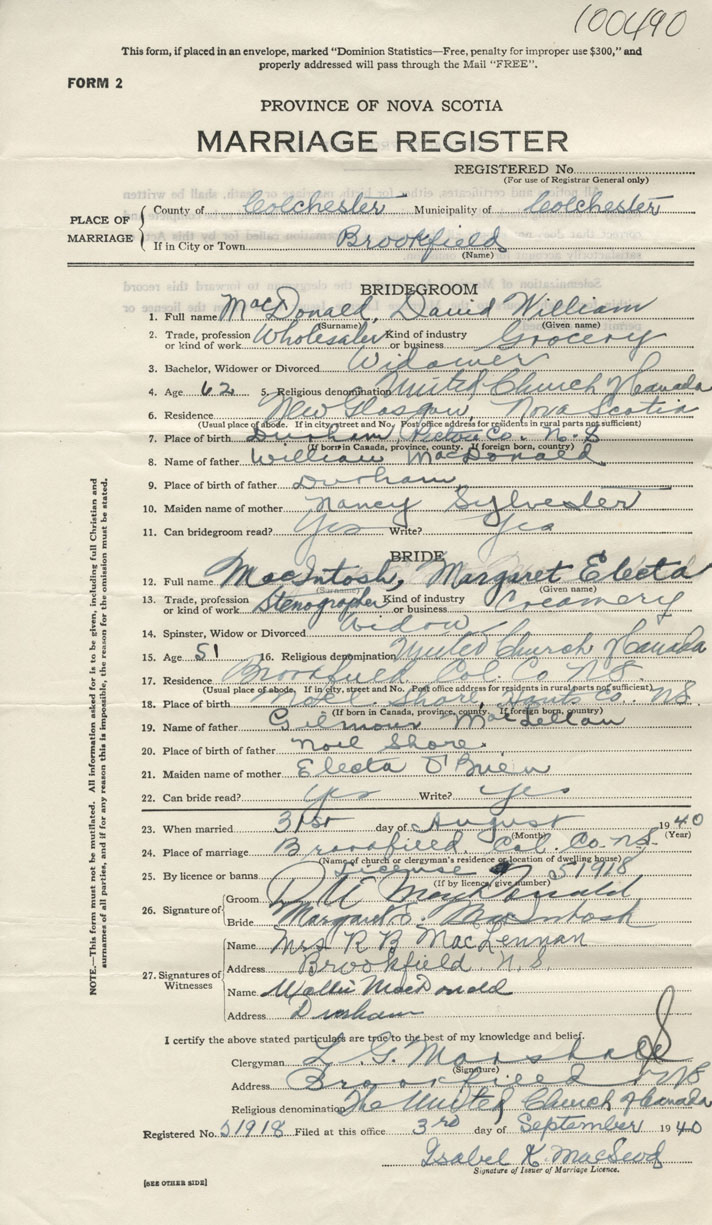 100490
This form, if placed in an envelope, marked "Dominion Statistics—Free, penalty for improper use $300," and
properly addressed will pass through the Mail "FREE".
FORM 2
PROVINCE OF NOVA SCOTIA
MARRIAGE REGISTER
REGISTERED No.
(For use of Registrar General only)
PLACE OF MARRIAGE
County of Colchester Municipality of Colchester
If in City or Town Brookfield
(Name)
BRIDEGROOM
1. Full name MacDonald, David William
(Surname) (Given name)
2. Trade, profession or kind of work Wholesaler Kind of industry or business Grocery
3. Bachelor, Widower or Divorced Widower
4. Age 62 5. Religious denomination United Church of Canada
6. Residence New Glasgow, Nova Scotia
(Usual place of abode. If in city street and No. Post office address for residents in rural parts not sufficient)
7. Place of birth Durham, Pictou Co. N.S
(If born in Canada, province, county. If foreign born, country)
8. Name of father William MacDonald
9. Place of birth of father Durham
10. Maiden name of mother Nancy Sylvester
11. Can bridegroom read? Yes Write? Yes
BRIDE
12. Full name MacIntosh, Margaret Electa
(Surname) (Given name)
13. Trade, profession or kind of work Stenographer Kind of industry or business Creamery
14. Spinster, Widow or Divorced Widow
15. Age 51 16. Religious denomination United Church of Canada
17. Residence Brookfield Col. Co N.S.
(Usual place of abode. If in city, street and No. Post office address for residents in rural parts not sufficient)
18. Place of birth Noel Shore, Hants Co. N.S.
(If born in Canada, province, county. If foreign born, country)
19. Name of father Gilmour MacLellan
20. Place of birth of father Noel Shore.
21. Maiden name of mother Electa O'Brien
22. Can bride read? Yes Write? Yes
23. When married 31st day of August 1940
(Month) (Year)
24. Place of marriage Brookfield, Col. Co N.S.
(Name of church or clergyman's residence or location of dwelling house)
25. By licence or banns License 51918
(If by licence, give number)
26. Signature of
Groom D W MacDonald
Bride Margaret E. MacIntosh
27. Signatures of Witnesses
Name Mrs R B MacLennan
Address Brookfield N.S.
Name Wallie MacDonald
Address Durham
I certify the above stated particulars are true to the best of my knowledge and belief.
Clergyman L. G. Marshall
(Signature)
Address Brookfield NS
Religious denomination The United Church of Canada
Registered No. 51918 Filed at this office 3rd day of September 1940
Isabel K. MacLeod
Signature of Issuer of Marriage Licence.
[SEE OTHER SIDE]
NOTE.—This form must not be mutilated. All information asked for is to be given, including full Christian and
surnames of all parties, and if for any reason this is impossible, the reason for the omission must be stated.